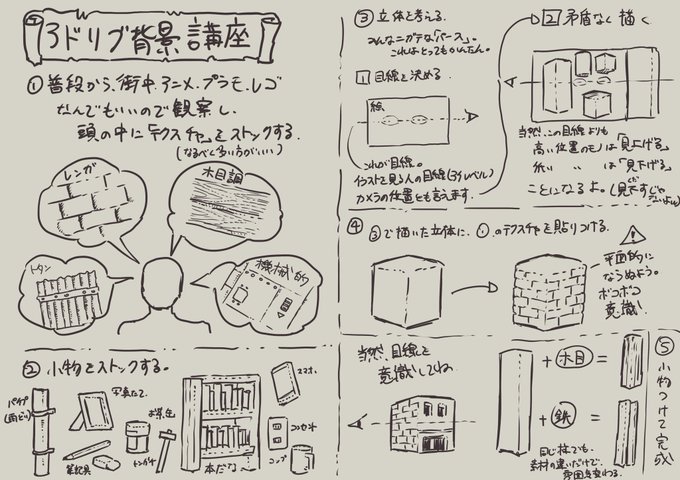 3ドリブ背景講座
① 普段から、街中、アニメ、プラモ、レゴ
なんでもいいので観察し、
頭の中に「テクスチャ」をストックする。
(なるべく多い方がいい)
レンガ
木目調
トタン
機械的
② 小物をストックする。
パイプ
(雨どい)
写真たて。
筆記具
お茶缶
トンカチ
本だな〜
スマホ。
コンセント
コップ
③ 立体を考える。
みんなニガテな「パース」。
これはとってもかんたん。
1 目線を決める。
絵
これが目線。
イラストを見る人の目線(アイレベル)
カメラの位置とも言えます。
2 矛盾なく描く
当然、この目線よりも
高い位置のモノは「見上げる」
低い 〃 は「見下げる」
ことになるよ。(見下すじゃ
ないよ)
④ ③で描いた立体に、①のテクスチャを貼りつける。
平面的に
ならぬよう。
ボコボコ
意識!
当然、目線を
意識してね
⑤ 小物つけて完成
+ 木目 =
+ 鉄 =
同じ柱でも、
素材の違いだけで、
雰囲気変わる。